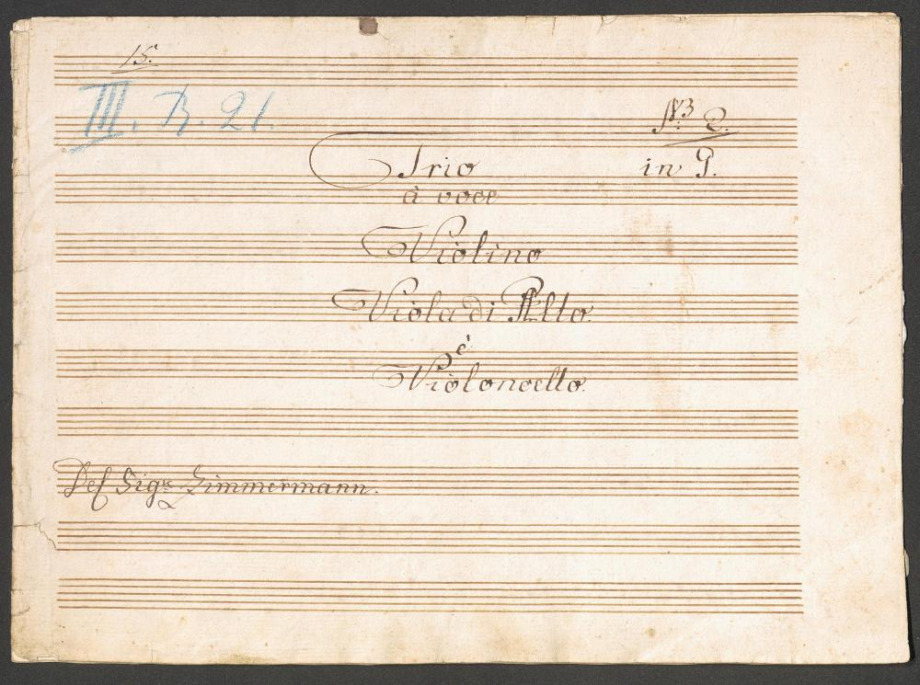 15.
III. B. 21.
Nº 2.
Trio
in G.
à voce
Violino
Viola di Alto.
è
Violoncello.
Del Sigr. Zimmermann.